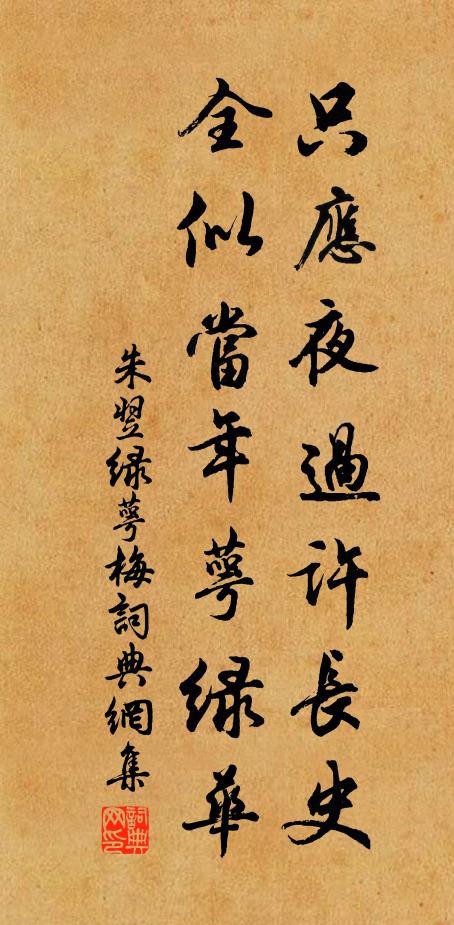 只應夜過許長史
全似當年萼綠華
朱翌綠萼梅詞典網集
詞典网印